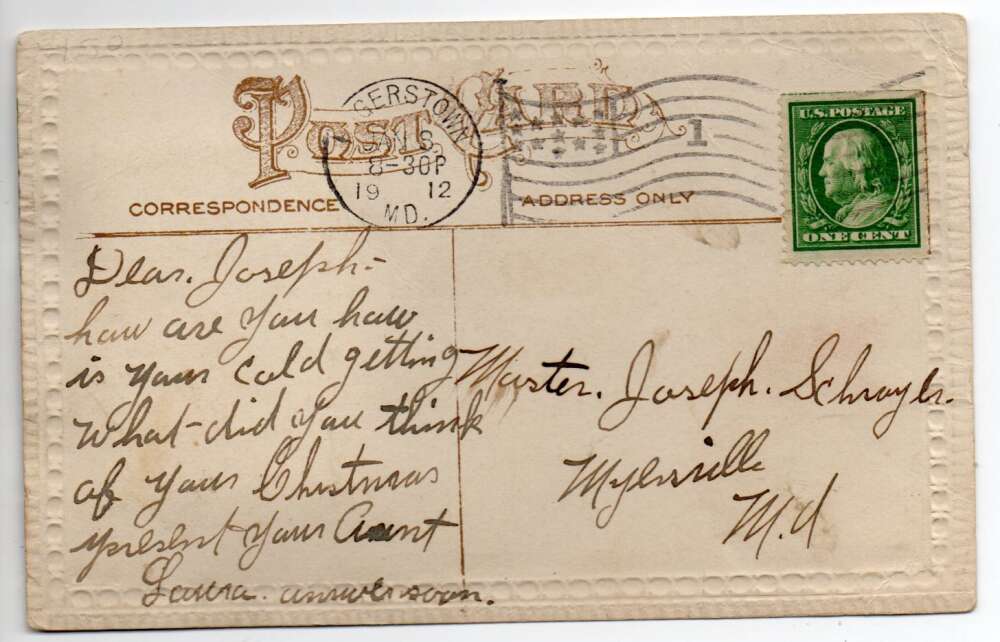 POST CARD
GERSTOWN
JAN 8
8-30P
19 12
MD.
1
U.S. POSTAGE
ONE CENT
CORRESPONDENCE
ADDRESS ONLY
Dear. Joseph-
how are you how
is your cold getting
what did you think
of your Christmas
present your Aunt
Laura. answer soon.
Master. Joseph. Schroyer.
Myersville
Md